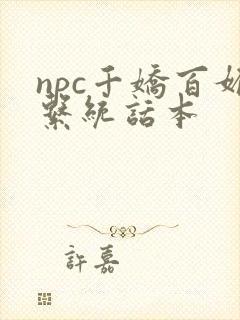 npc千嬌百媚
繫統話本
許嘉